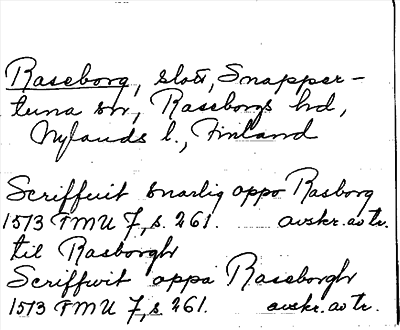 Raseborg, slott, Snapper-
tuna sn, Raseborgs hd,
Nylands l., Finland
Scriffuit snarlig oppo Rasborg
1573 FMU 7, s. 261. avskr. av tr.
til Rasborgh
Scriffwit oppa Raseborgh
1573 FMU 7, s. 261. avskr. av tr.